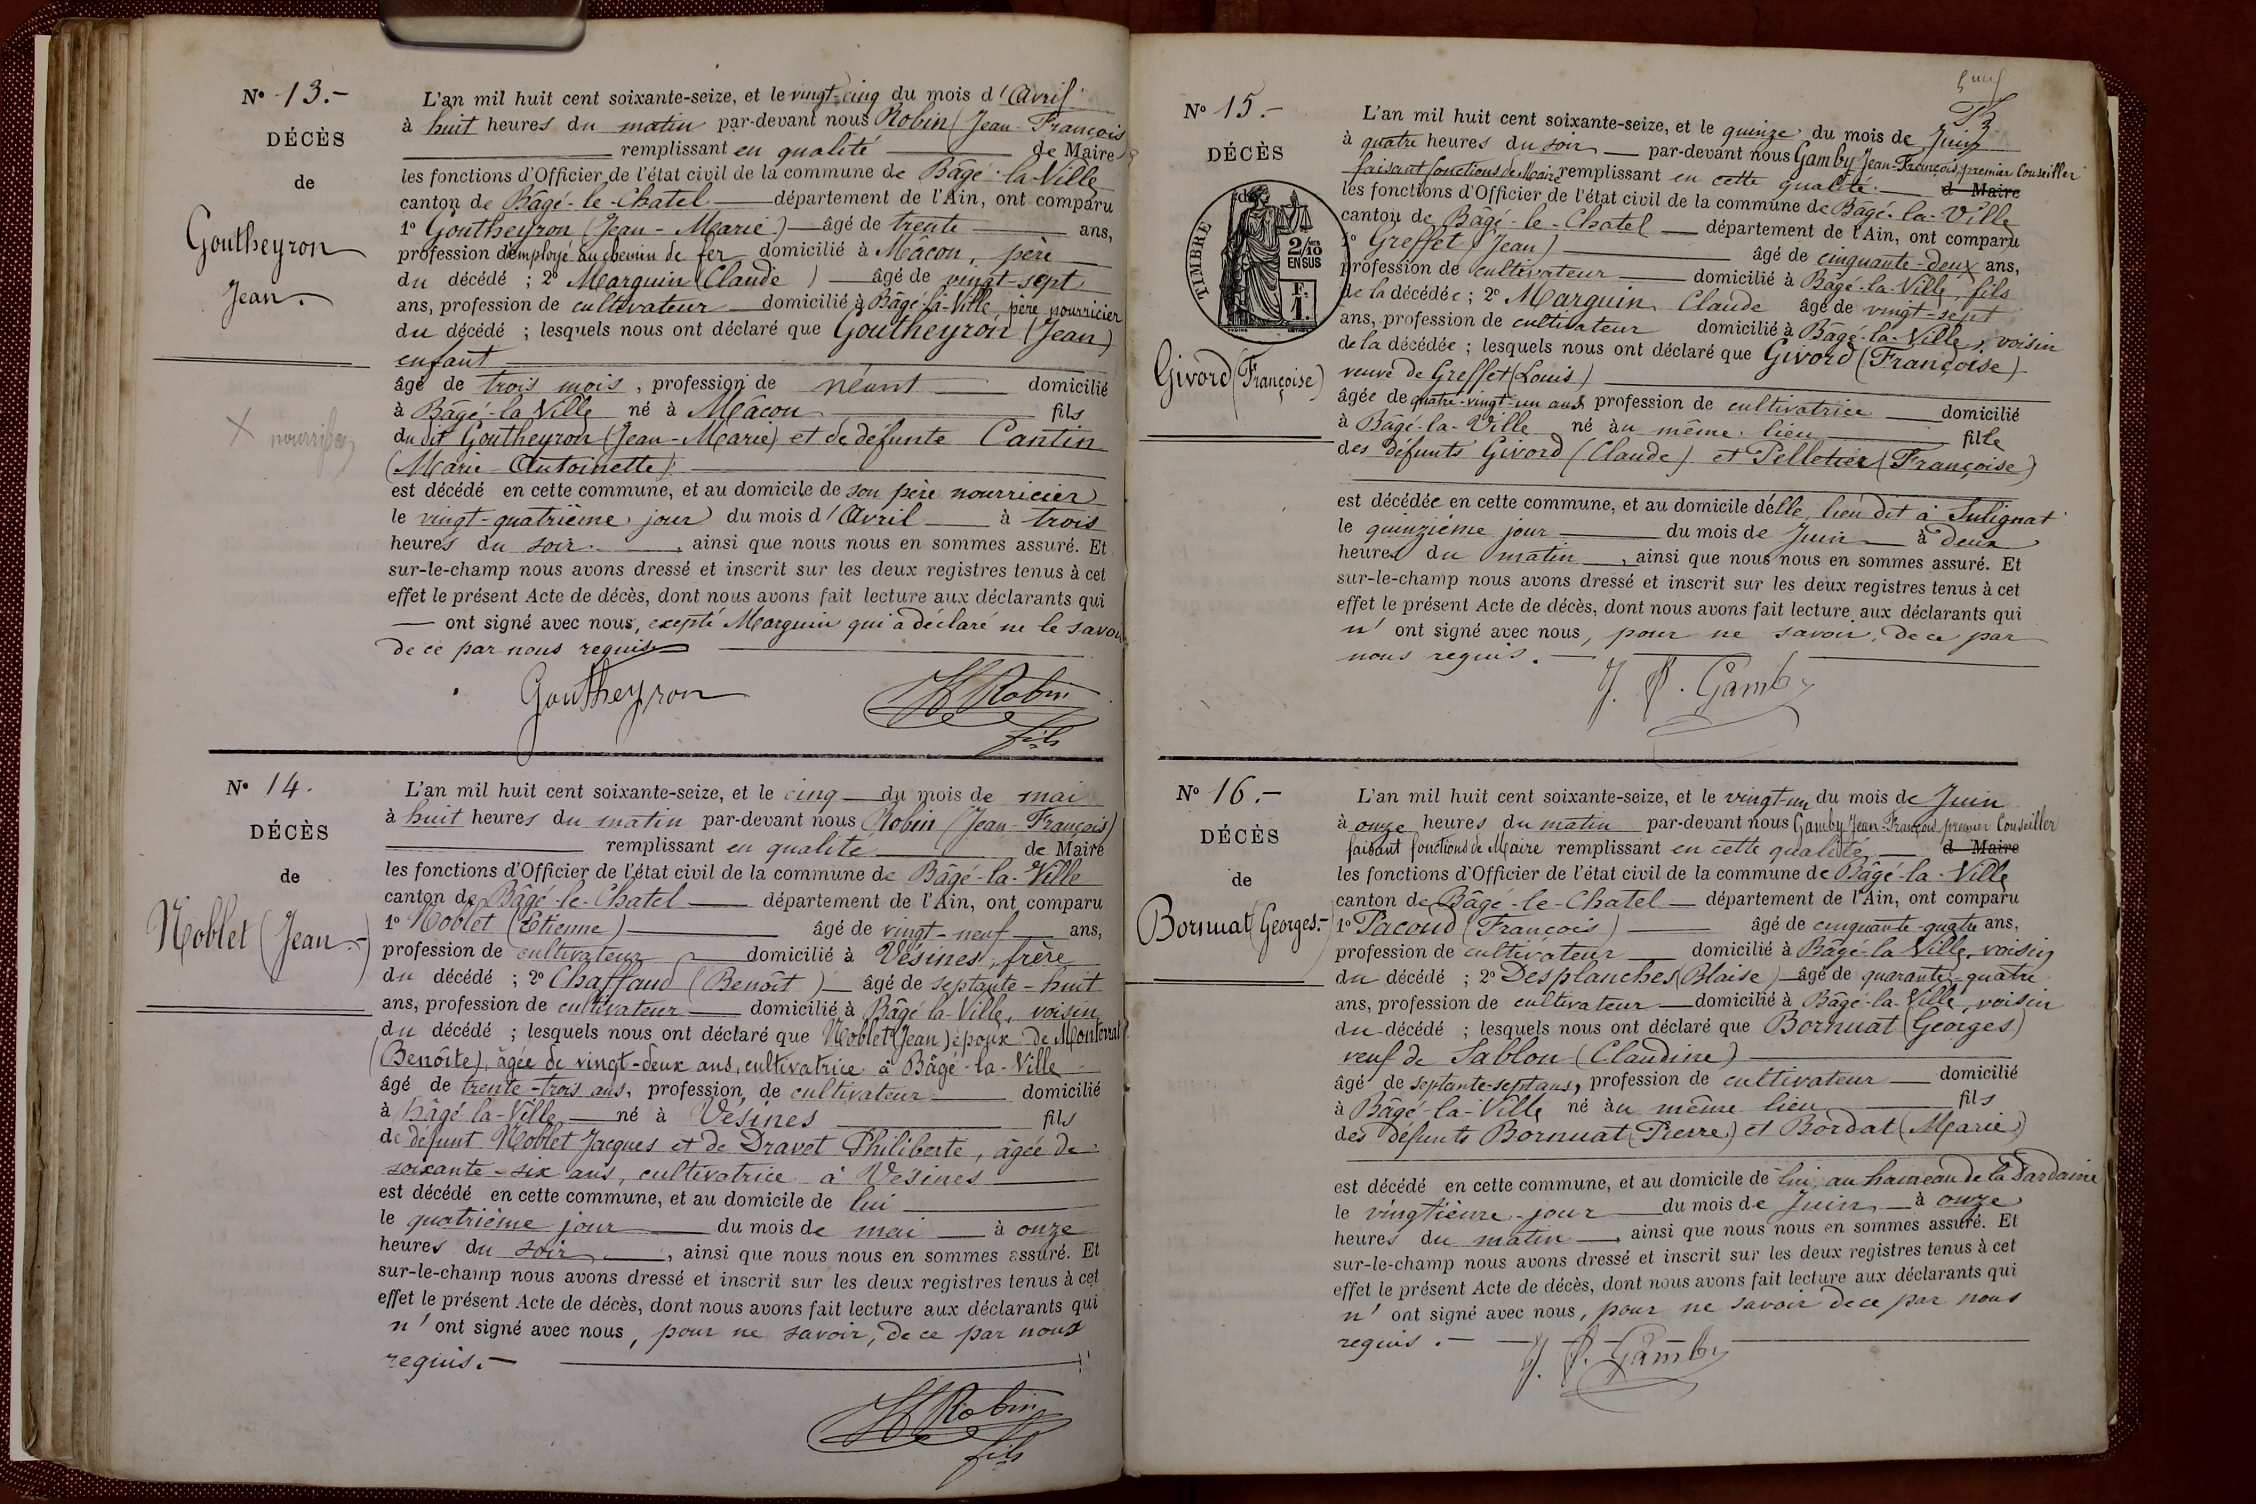 N° 13.-
DÉCÈS
de
Goutheyron
Jean.-
L'an mil huit cent soixante-seize, et le vingt-cinq du mois d'Avril
à huit heures du matin par-devant nous Robin (Jean-François
remplissant en qualité de Maire
les fonctions d'Officier de l'état civil de la commune de Bâgé-la-Ville
canton de Bâgé-le-Chatel département de l'Ain, ont comparu
1° Goutheyron (Jean-Marie) âgé de trente ans,
profession d'employé au chemin de fer domicilié à Mâcon, père
du décédé ; 2° Marguin (Claude) âgé de vingt-sept
ans, profession de cultivateur domicilié à Bâgé-la-Ville, père nourricier
du décédé ; lesquels nous ont déclaré que Goutheyron (Jean)
enfant
âgé de trois mois, profession de néant domicilié
à Bâgé-la-Ville né à Mâcon fils
du dit Goutheyron (Jean-Marie) et de défunte Cantin
(Marie-Antoinette)
est décédé en cette commune, et au domicile de son père nourricier
le vingt-quatrième jour du mois d'Avril à trois
heures du soir, ainsi que nous nous en sommes assuré. Et
sur-le-champ nous avons dressé et inscrit sur les deux registres tenus à cet
effet le présent Acte de décès, dont nous avons fait lecture aux déclarants qui
ont signé avec nous, excepté Marguin qui a déclaré ne le savoir
de ce par nous requis
Goutheyron
Robin
fils
N° 14.
DÉCÈS
de
Noblet (Jean.-)
L'an mil huit cent soixante-seize, et le cinq du mois de mai
à huit heures du matin par-devant nous Robin (Jean-François)
remplissant en qualité de Maire
les fonctions d'Officier de l'état civil de la commune de Bâgé-la-Ville
canton de Bâgé-le-Chatel département de l'Ain, ont comparu
1° Noblet (Etienne) âgé de vingt-neuf ans,
profession de cultivateur domicilié à Vésines, frère
du décédé ; 2° Chaffaud (Benoît) âgé de septante-huit
ans, profession de cultivateur domicilié à Bâgé-la-Ville, voisin
du décédé ; lesquels nous ont déclaré que Noblet (Jean) époux de
(Benoîte), âgée de vingt-deux ans, cultivatrice à Bâgé-la-Ville
âgé de trente-trois ans, profession de cultivateur domicilié
à Bâgé-la-Ville né à Vésines fils
de défunt Noblet Jacques et de Dravet Philiberte, âgée de
soixante-six ans, cultivatrice à Vésines
est décédé en cette commune, et au domicile de lui
le quatrième jour du mois de mai à onze
heures du soir, ainsi que nous nous en sommes assuré. Et
sur-le-champ nous avons dressé et inscrit sur les deux registres tenus à cet
effet le présent Acte de décès, dont nous avons fait lecture aux déclarants qui
n'ont signé avec nous, pour ne savoir, de ce par nous
requis.-
Robin
fils
N° 15.-
DÉCÈS
de
TIMBRE
2/10
EN SUS
F.
1.
Givord (Françoise)
L'an mil huit cent soixante-seize, et le quinze du mois de Juin
à quatre heures du soir par-devant nous Gamby Jean-François premier Conseiller
faisant fonctions de Maire remplissant en cette qualité d Maire
les fonctions d'Officier de l'état civil de la commune de Bâgé-la-Ville
canton de Bâgé-le-Chatel département de l'Ain, ont comparu
1° Greffet (Jean) âgé de cinquante-deux ans,
profession de cultivateur domicilié à Bâgé-la-Ville, fils
de la décédée ; 2° Marguin Claude âgé de vingt-sept
ans, profession de cultivateur domicilié à Bâgé-la-Ville, voisin
de la décédée ; lesquels nous ont déclaré que Givord (Françoise)
veuve de Greffet (Louis)
âgée de quatre-vingt-un ans profession de cultivatrice domicilié
à Bâgé-la-Ville né au même lieu fille
des défunts Givord (Claude) et Pelletier (Françoise)
est décédée en cette commune, et au domicile d'elle, lieu dit à Sulignat
le quinzième jour du mois de Juin à deux
heures du matin, ainsi que nous nous en sommes assuré. Et
sur-le-champ nous avons dressé et inscrit sur les deux registres tenus à cet
effet le présent Acte de décès, dont nous avons fait lecture aux déclarants qui
n'ont signé avec nous, pour ne savoir, de ce par
nous requis.
J. F. Gamby
N° 16.-
DÉCÈS
de
Bornuat (Georges.-)
L'an mil huit cent soixante-seize, et le vingt-un du mois de Juin
à onze heures du matin par-devant nous Gamby Jean-François premier Conseiller
faisant fonctions de Maire remplissant en cette qualité d Maire
les fonctions d'Officier de l'état civil de la commune de Bâgé-la-Ville
canton de Bâgé-le-Chatel département de l'Ain, ont comparu
1° Pacoud (François) âgé de cinquante-quatre ans,
profession de cultivateur domicilié à Bâgé-la-Ville, voisin
du décédé ; 2° Desplanches (Blaise) âgé de quarante-quatre
ans, profession de cultivateur domicilié à Bâgé-la-Ville, voisin
du décédé ; lesquels nous ont déclaré que Bornuat (Georges)
veuf de Sablon (Claudine)
âgé de septante-sept ans, profession de cultivateur domicilié
à Bâgé-la-Ville né au même lieu fils
des défunts Bornuat (Pierre) et Bordat (Marie)
est décédé en cette commune, et au domicile de lui, au hameau de la
le vingtième jour du mois de Juin à onze
heures du matin, ainsi que nous nous en sommes assuré. Et
sur-le-champ nous avons dressé et inscrit sur les deux registres tenus à cet
effet le présent Acte de décès, dont nous avons fait lecture aux déclarants qui
n'ont signé avec nous, pour ne savoir de ce par nous
requis.-
J. F. Gamby